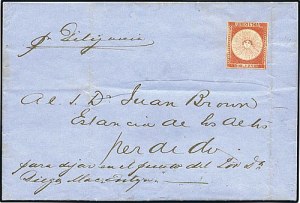 p Diligencia
Al S. D. Juan Brown
Estancia de los Altos
Perdido
para dejar en el puesto del Sor Dn
Diego